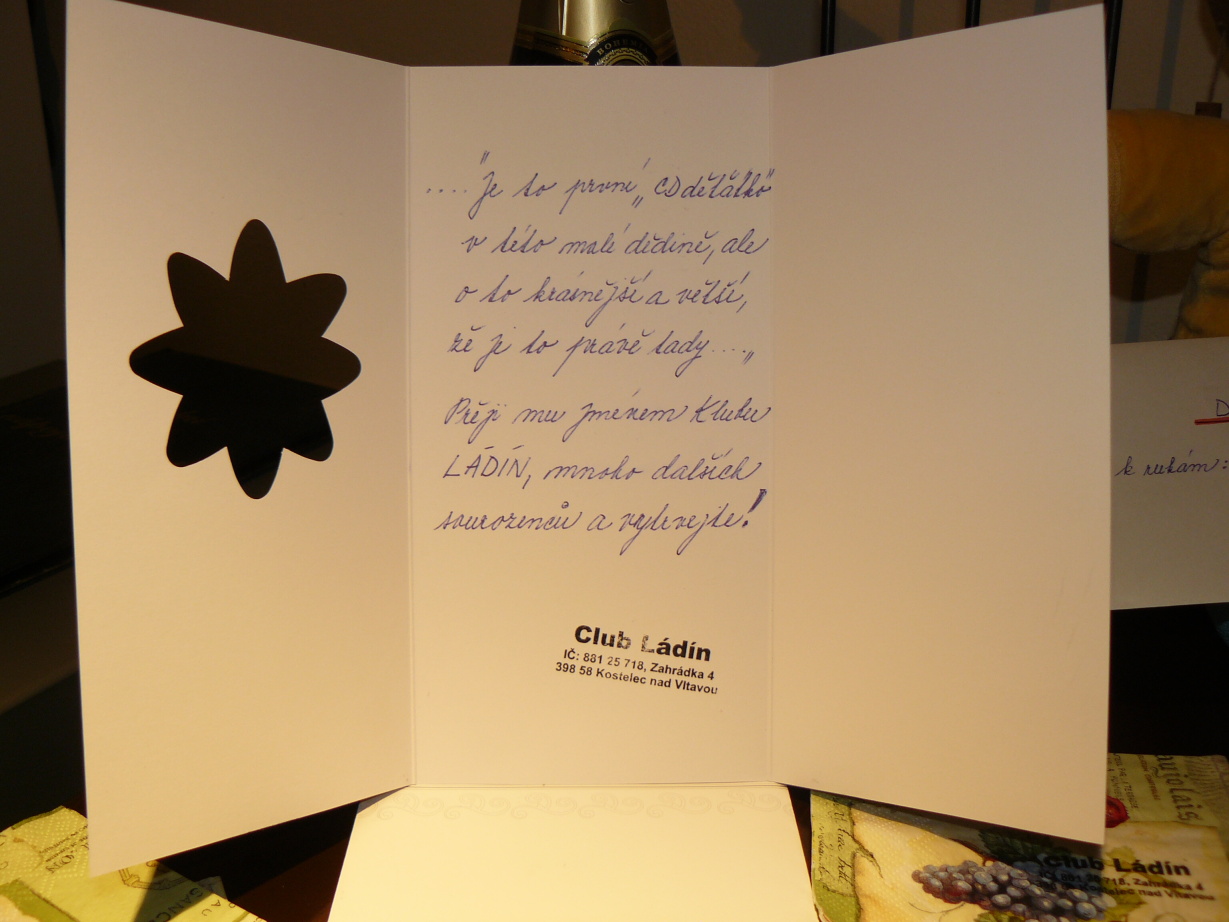 BOHEMIA
...."Je to první „CD děťátko"
v této malé dědině, ale
o to krásnější a větší,
že je to právě tady....„
Přeji mu jménem Klubu
LÁDÍN, mnoho dalších
sourozenců a vytrvejte!
Club Ládín
IČ: 881 25 718, Zahrádka 4
398 58 Kostelec nad Vltavou
D
k rukám:
Club Ládín
IČ: 881 25 718, Zahrádka 4
Kostelec nad Vltavou